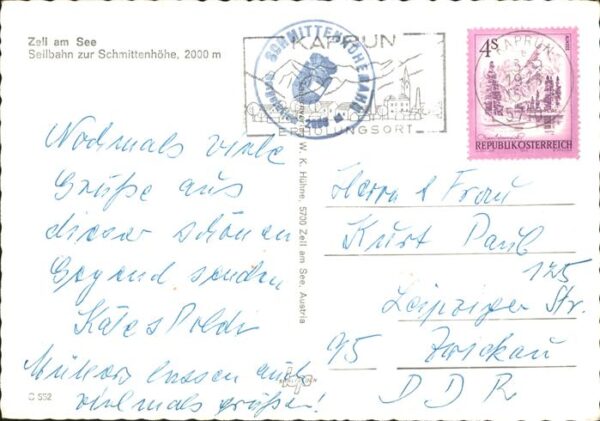 Zell am See
Seilbahn zur Schmittenhöhe, 2000 m
SCHMITTENHÖHEBAHN
2000 m
KAPRUN
ERHOLUNGSORT
KAPRUN
4S
REPUBLIK ÖSTERREICH
Nochmals viele
Grüße aus
dieser schönen
Gegend senden
Käte & Poldi
lassen auch
vielmals grüßen!
W. K. Hühne, 5700 Zell am See, Austria
Herrn & Frau
Kurt Paul
125
Leipziger Str.
95 Zwickau
DDR
C 552